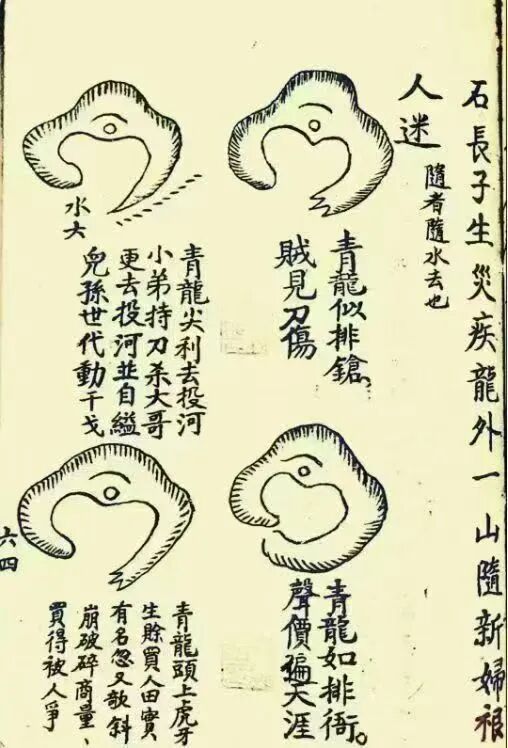 石長子生災疾龍外一山隨新婦被
人迷
隨者隨水去也
青龍似排鎗。
賊見刀傷
水大
青龍尖利去投河
小弟持刀杀大哥
更去投河並自縊
兒孫世代動干戈
青龍如排衙。
聲價遍天涯
青龍頭上虎牙
生賒買人田實
有名忽又欹斜
崩破碎商量、
買得被人爭
六四